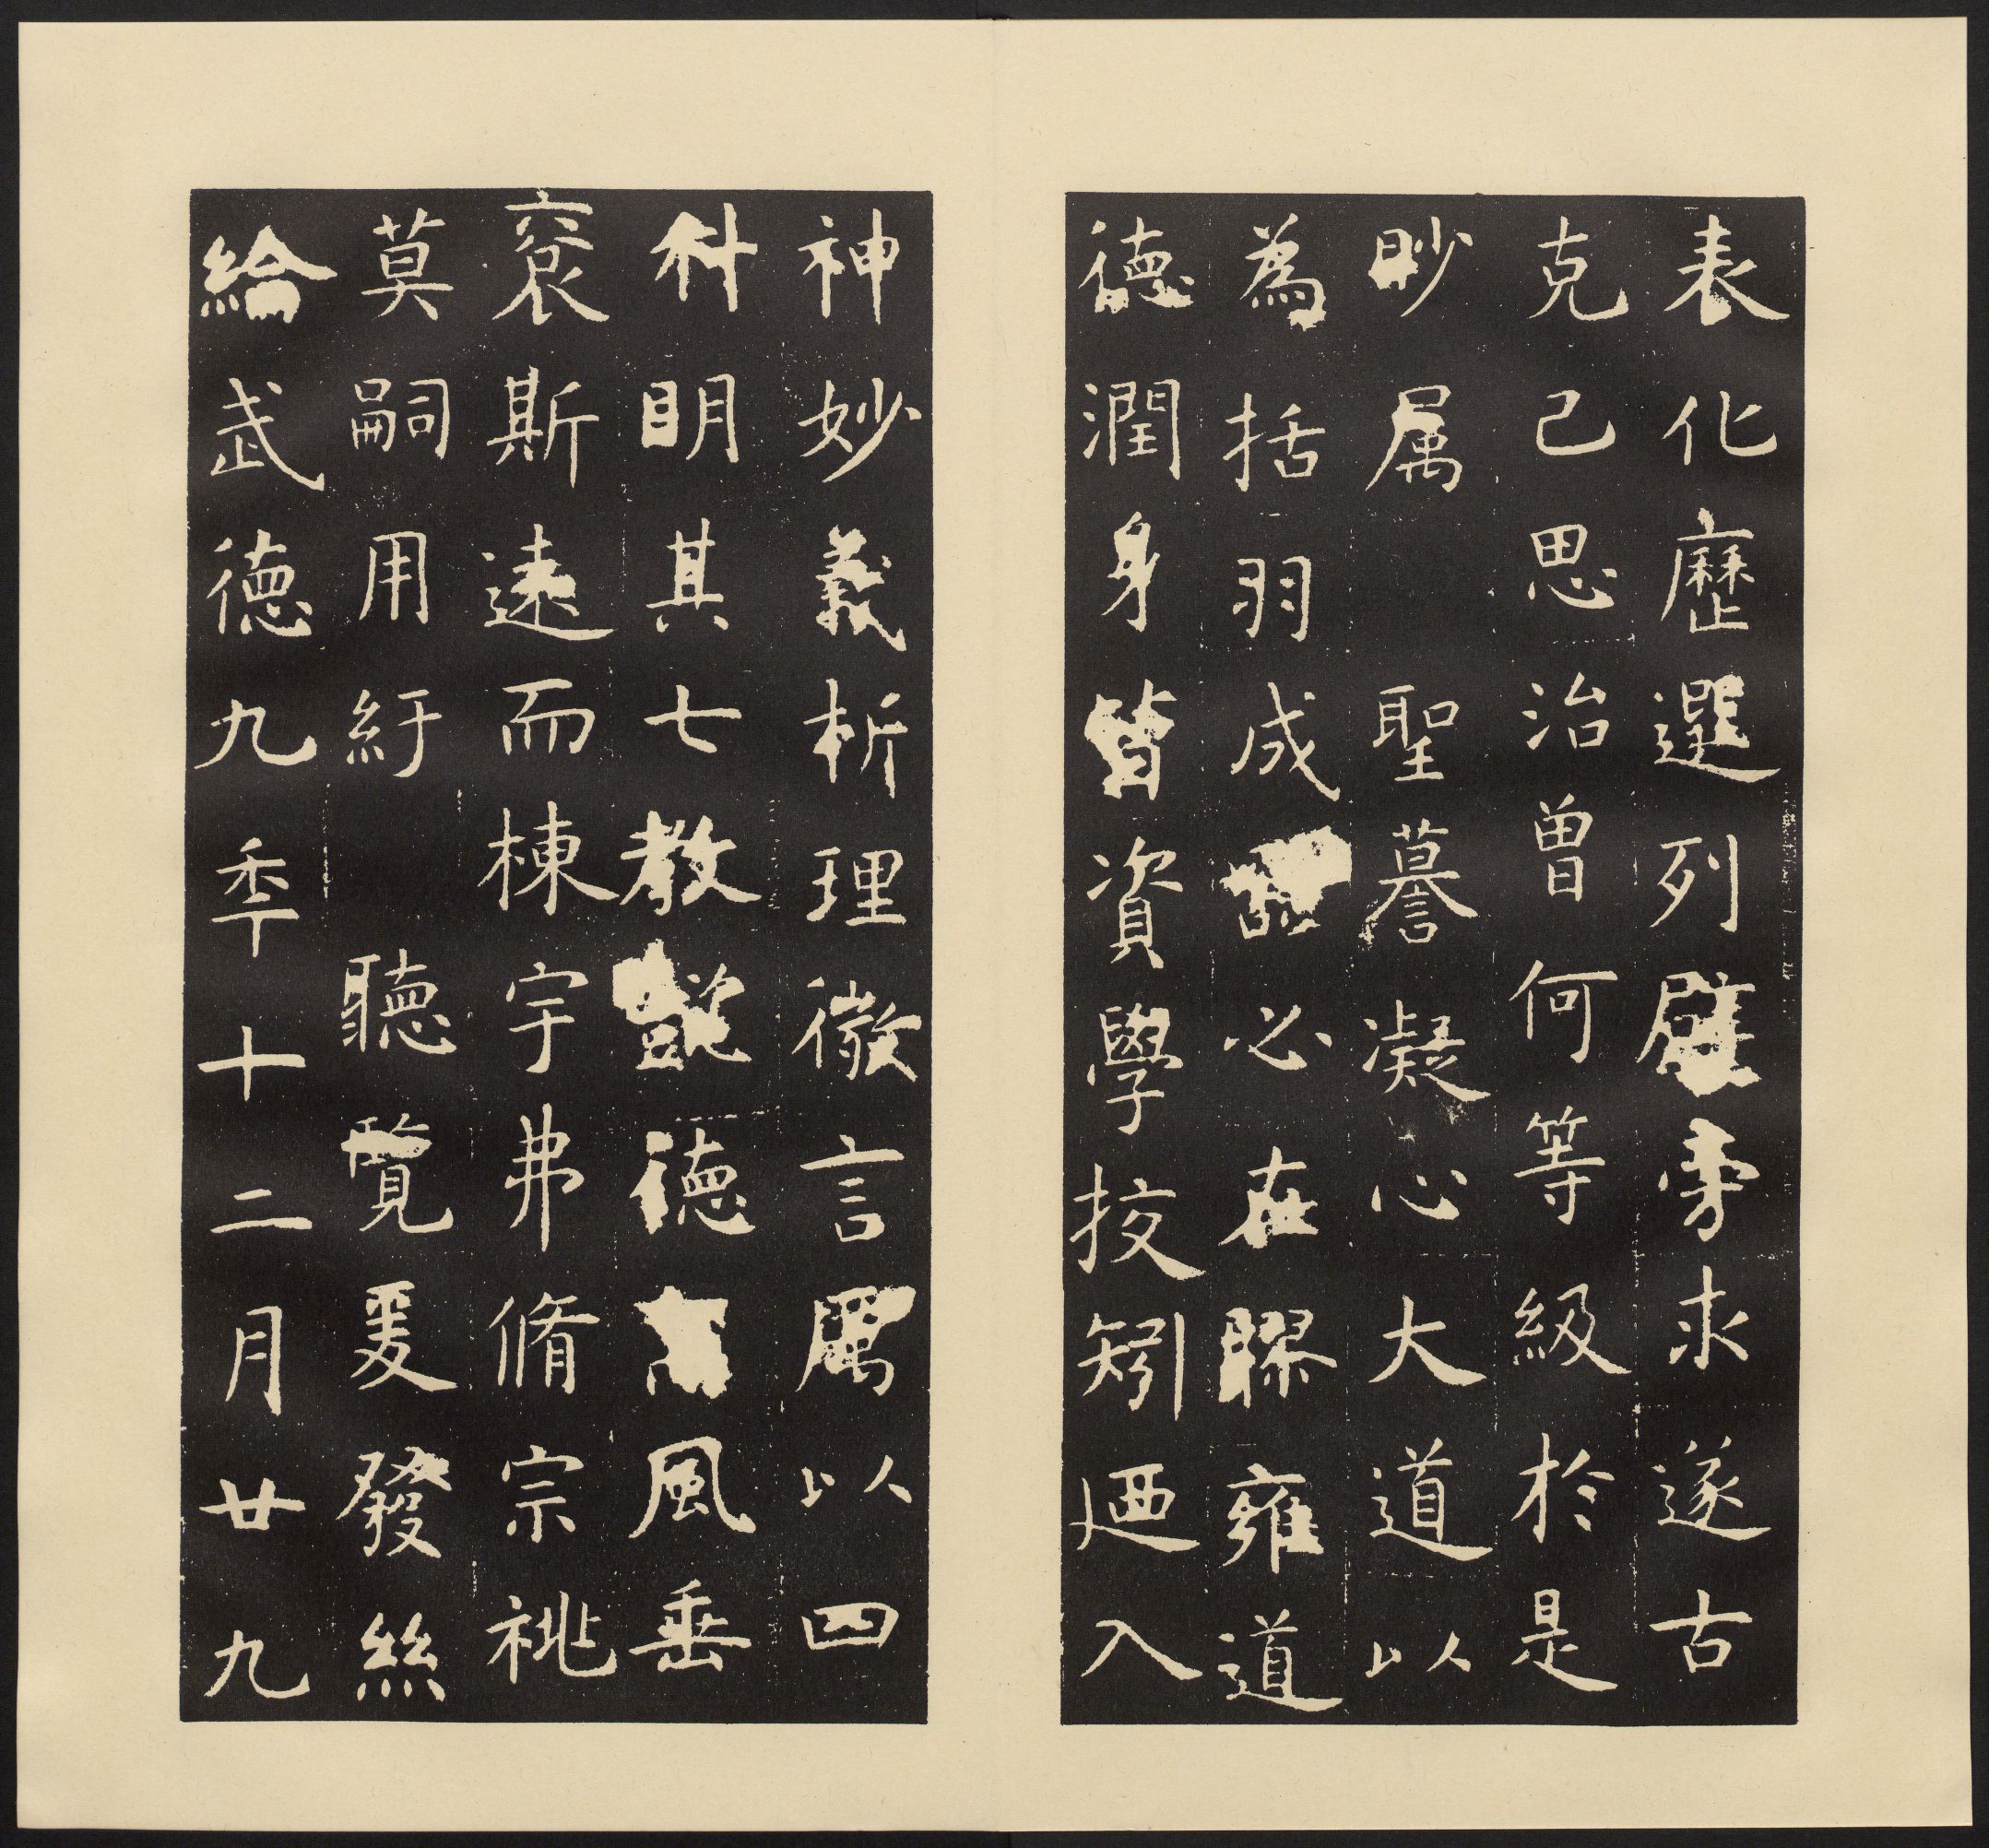 表化歷選列辟旁求遂古
克己思治曾何等級於是
眇属聖謩凝心大道以
為括羽成必在膠雍道
德潤身皆資學挍矧迺入
神妙義析理微言厲以四
科明其七教懿德高風垂
裒斯遠而棟宇弗脩宗祧
莫嗣用紆聽覽爰發絲
綸武德九秊十二月廿九